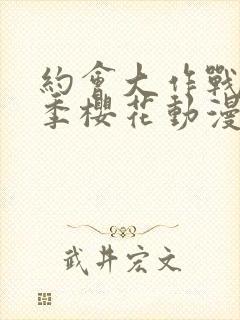 約會大作戰
季櫻花動漫
武井宏文